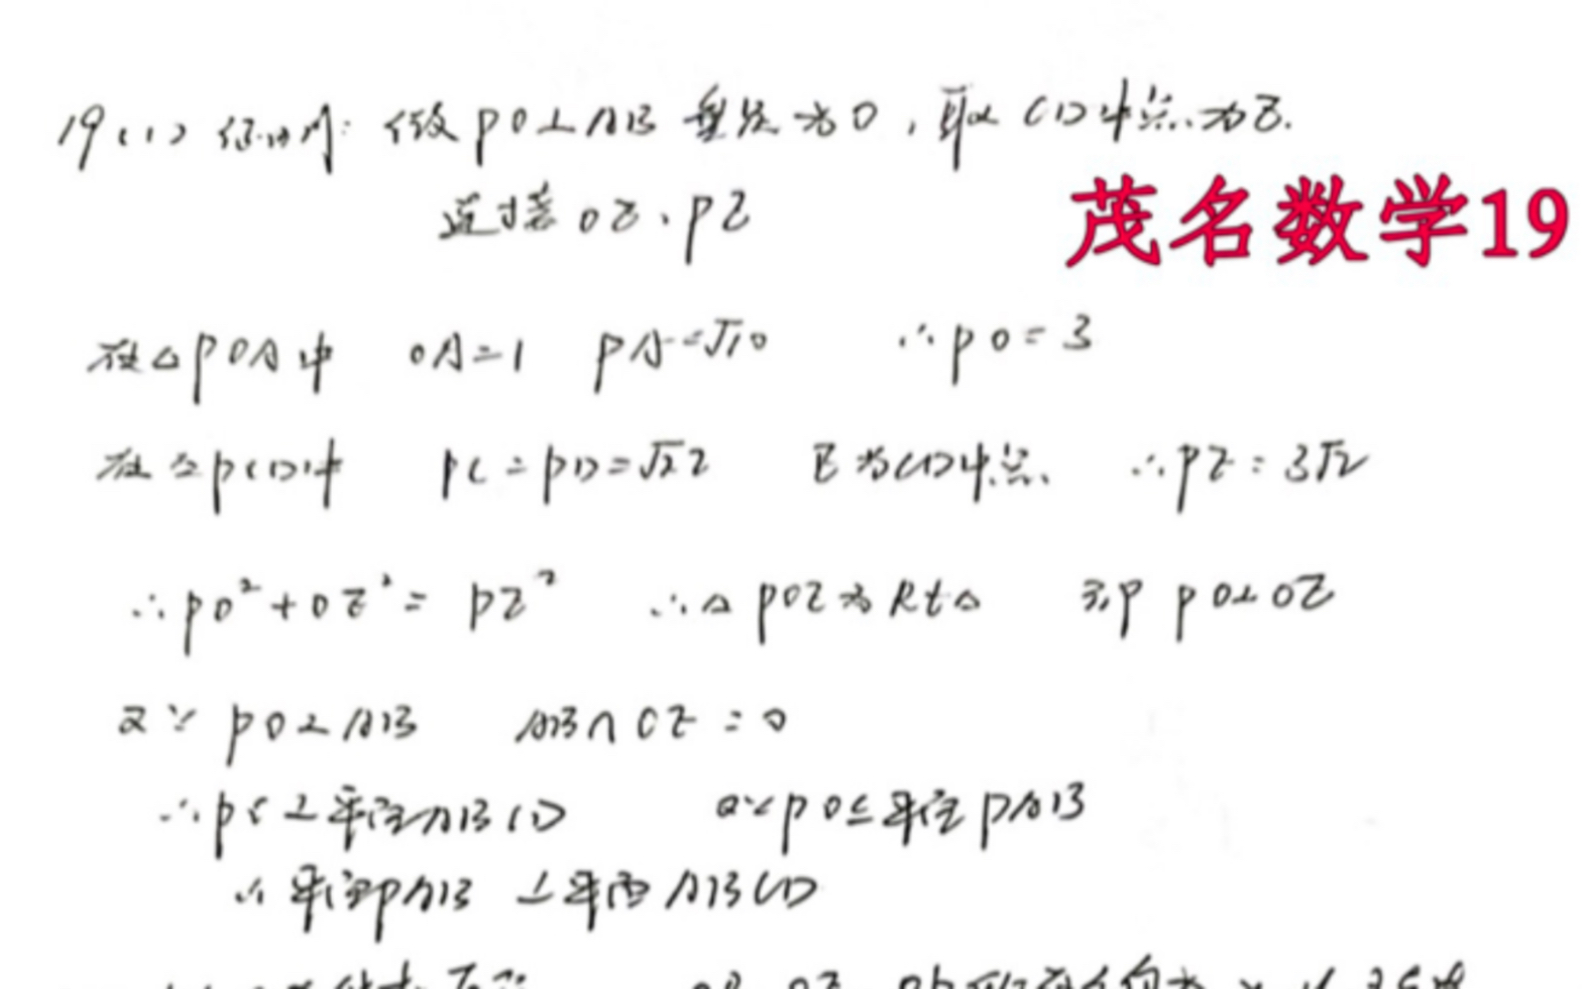 19(1) 证明: 做PO⊥AB 垂足为O，取CD中点为Z.
连接OZ、PZ
茂名数学19
在△POA中 OA=1 PA=√10 ∴PO=3
在△PCD中 PC=PD=√22 Z为CD中点、 ∴PZ=3√2
∴PO²+OZ²=PZ² ∴△POZ为Rt△ 即PO⊥OZ
又∵PO⊥AB AB∩OZ=O
∴PO⊥平面ABCD 又∵PO⊆平面PAB
∴平面PAB⊥平面ABCD